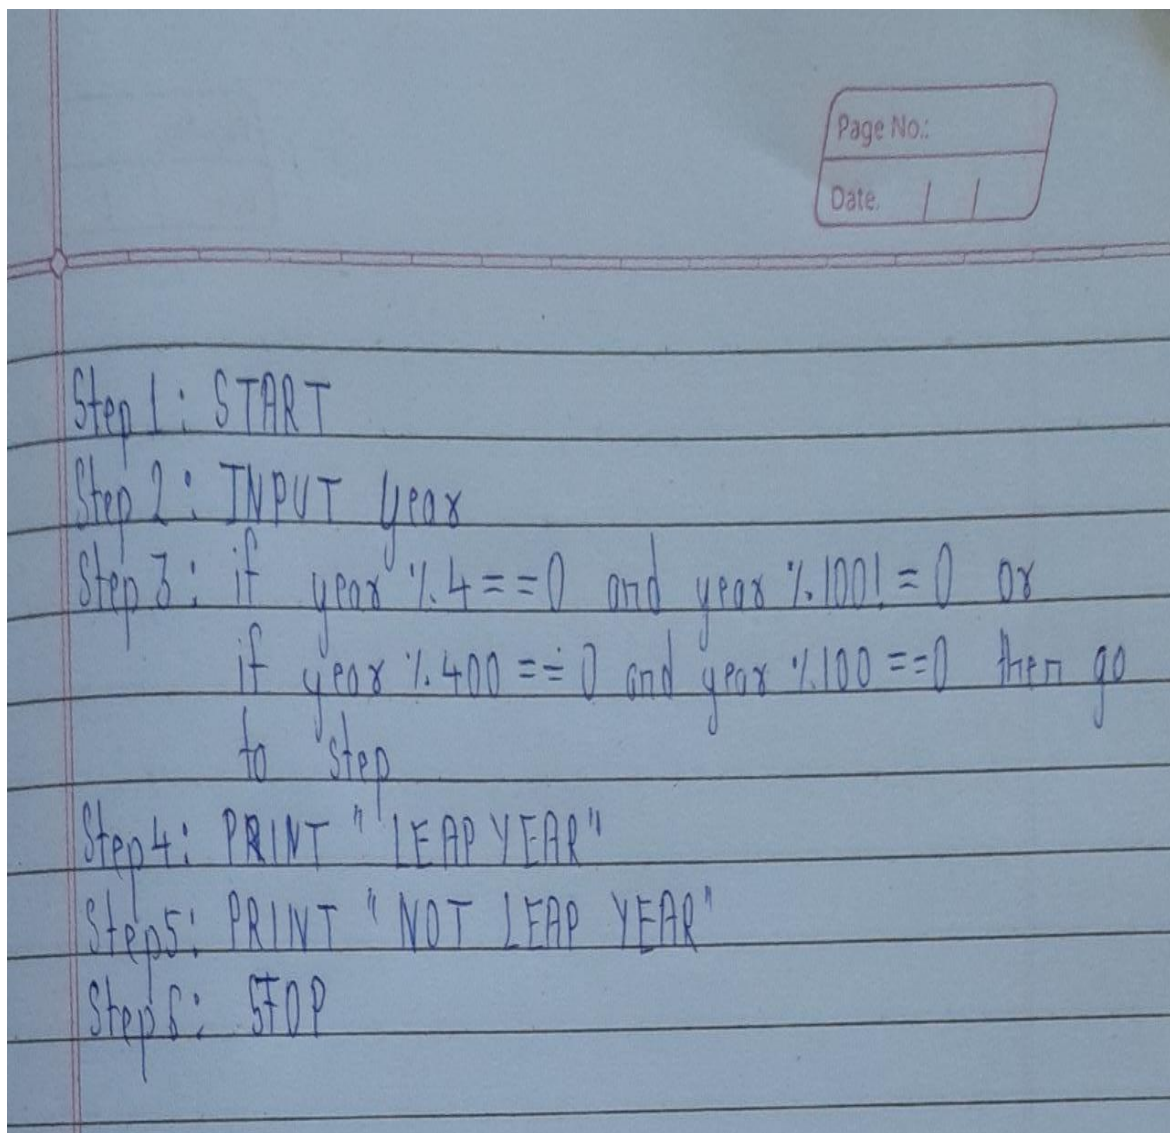 Page No.:
Date. / /
Step 1: START
Step 2: INPUT year
Step 3: if year %4==0 and year %100!=0 or
if year %400==0 and year %100==0 then go
to step
Step4: PRINT "LEAP YEAR"
Step5: PRINT "NOT LEAP YEAR"
Step6: STOP